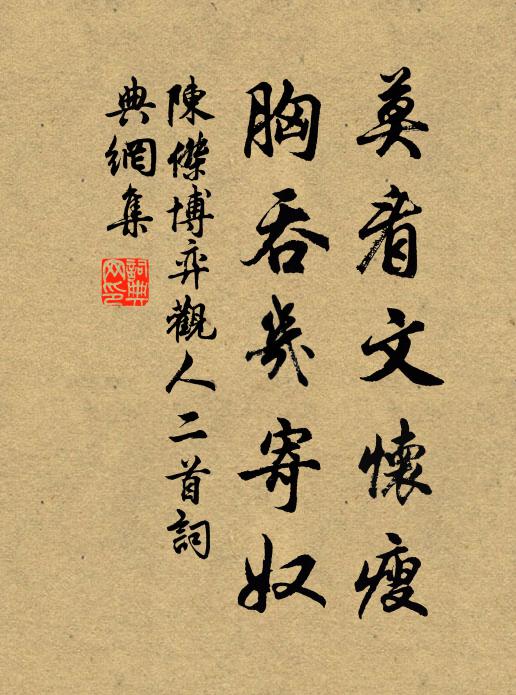 莫看文懷瘦
胸吞幾寄奴
陳傑博弈觀人二首詞
典網集
詞典網印